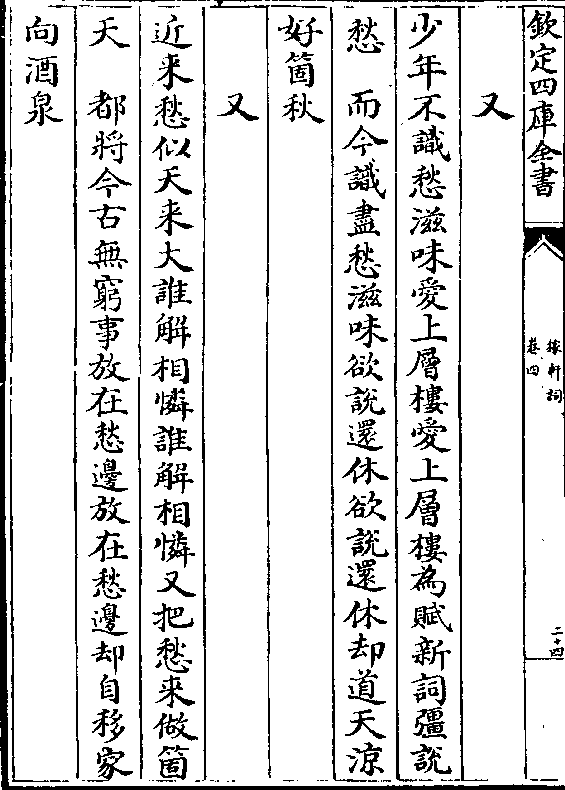 欽定四庫全書
稼軒詞
卷四
二十四
又
少年不識愁滋味愛上層樓愛上層樓為賦新詞彊説
愁　而今識盡愁滋味欲説還休欲説還休却道天涼
好箇秋
又
近来愁似天来大誰解相憐誰解相憐又把愁来做箇
天　都將今古無窮事放在愁邊放在愁邊却自移家
向酒泉